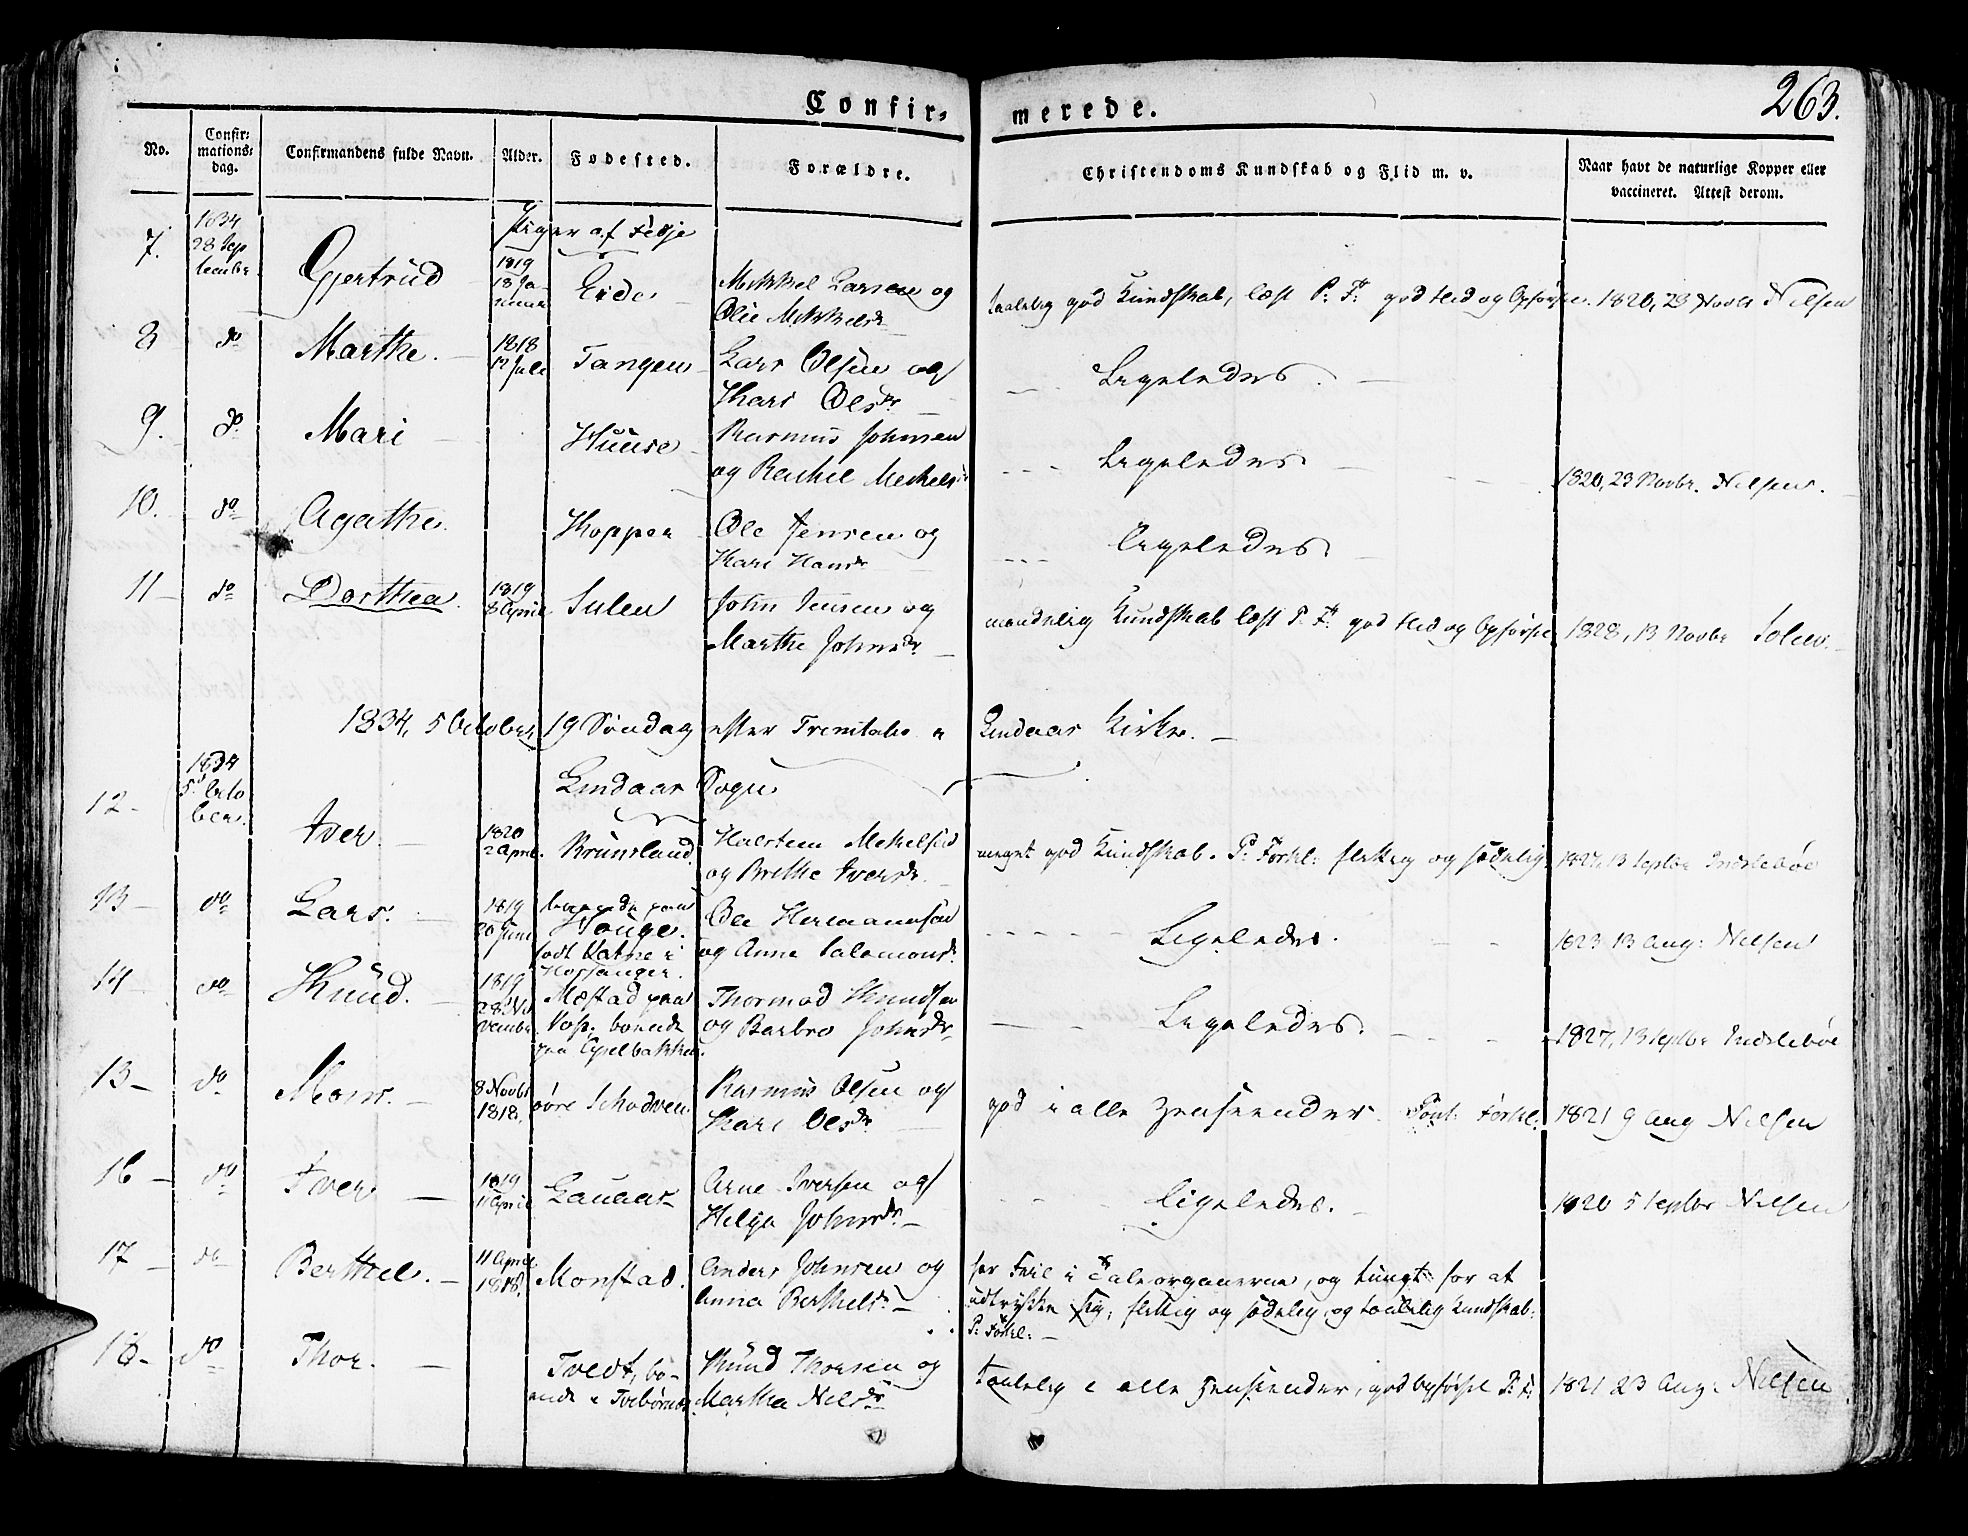 Confir- merede. 263.
No. Confir-mations-dag. Confirmandens fulde Navn. Alder. Fødested. Forældre. Christendoms Kundskab og Flid m. v. Naar havt de naturlige Kopper eller vaccineret. Attest derom.
Piger af Fedje
7. 1834 28 September Gjertrud 1819 18 Januar Eide Mikkel Larsen og Olie Mikkelsdr taalelig god Kundskab, læst P. F. god Flid og Opførsel. 1820, 23 Novbr Nilsen
8 do Marthe. 1818 12 Juli Tangen Lars Olsen og Kari Olsdr Ligeledes.
9. do Mari Huuse Rasmus Johnsen og Rachel Mickelsd Ligeledes 1820, 23 Novbr. Nilsen.
10. do Agathe Kopper Ole Jensen og Kari Hansdr Ligeledes
11 do Dorthea 1819 8 April Sulen John Jensen og Marthe Johnsdr maadelig Kundskab læst P. F. god Flid og Opførsel 1828, 13 Novbr Solem.
1834, 5 October, 19 Søndag efter Trinitatis i Lindaas Kirke.
Lindaas Sogn
12 1834 5 October. Iver 1820 2 April. Bruunsland Halsten Mikelsen og Brithe Iversdr meget god Kundskab. P: Forkl: flittig og sædelig 1827, 13 Septbr Indrebøe
13 do Lars. 1819 20 Juni boende paa Houge. født Katne i Hossanger. Ole Hermansen og Anne Salamonsdr Ligeledes. 1823 13 Aug: Nilsen
14 do Knud. 1819 28 November Mestad paa Voss. boende paa Knud Thormod Knudsen og Barbro Johnsdr Ligeledes. 1827, 13 Septbr Indrebøe
15 do Mons. 8 Novbr 1818. øvre Schodven Rasmus Olsen og Kari Olsdr god i alle Henseender. Pont: Forkl: 1821 9 Aug Nilsen
16 do Iver 1819 11 April Lauaas Arne Iversen og Helga Johnsdr Ligeledes. 1820 5 Septbr Nilsen
17 do Berthel. 11 April 1818. Monstad. Anders Johnsen og Anna Berthelsd. har Feil i Taleorganerne, og tungt for at udtrykke sig, flittig og sædelig, og taalelig Kundskab. P: Forkl:
18 do Thor. Tvedt, boende i Knud Thorsen og Martha Nilsdr taalelig i alle Henseender, god Opførsel P: F: 1821 23 Aug: Nilsen